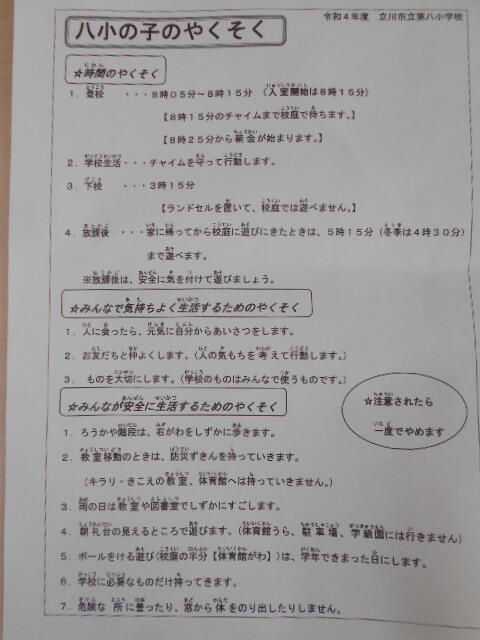 令和4年度 立川市立第八小学校
八小の子のやくそく
☆時間のやくそく
1. 登校 ・・・8時05分~8時15分 (入室開始は8時15分)
【8時15分のチャイムまで校庭で待ちます。】
【8時25分から朝会が始まります。】
2. 学校生活・・・チャイムを守って行動します。
3. 下校 ・・・3時15分
【ランドセルを置いて、校庭では遊べません。】
4. 放課後 ・・・家に帰ってから校庭に遊びにきたときは、5時15分(冬季は4時30分)
まで遊べます。
※放課後は、安全に気を付けて遊びましょう。
☆みんなで気持ちよく生活するためのやくそく
1. 人に会ったら、元気に自分からあいさつをします。
2. お友だちと仲よくします。(人の気もちを考えて行動します。)
3. ものを大切にします。(学校のものはみんなで使うものです。)
☆みんなが安全に生活するためのやくそく
☆注意されたら
一度でやめます
1. ろうかや階段は、右がわをしずかに歩きます。
2. 教室移動のときは、防災ずきんを持っていきます。
(キラリ・きこえの教室、体育館へは持っていきません。)
3. 雨の日は教室や図書室でしずかにすごします。
4. 朝礼台の見えるところで遊びます。(体育館うら、駐車場、学級園には行きません。)
5. ボールをける遊び(校庭の半分【体育館がわ】)は、学年できまった日にします。
6. 学校に必要なものだけ持ってきます。
7. 危険な所に登ったり、窓から体をのり出したりしません。